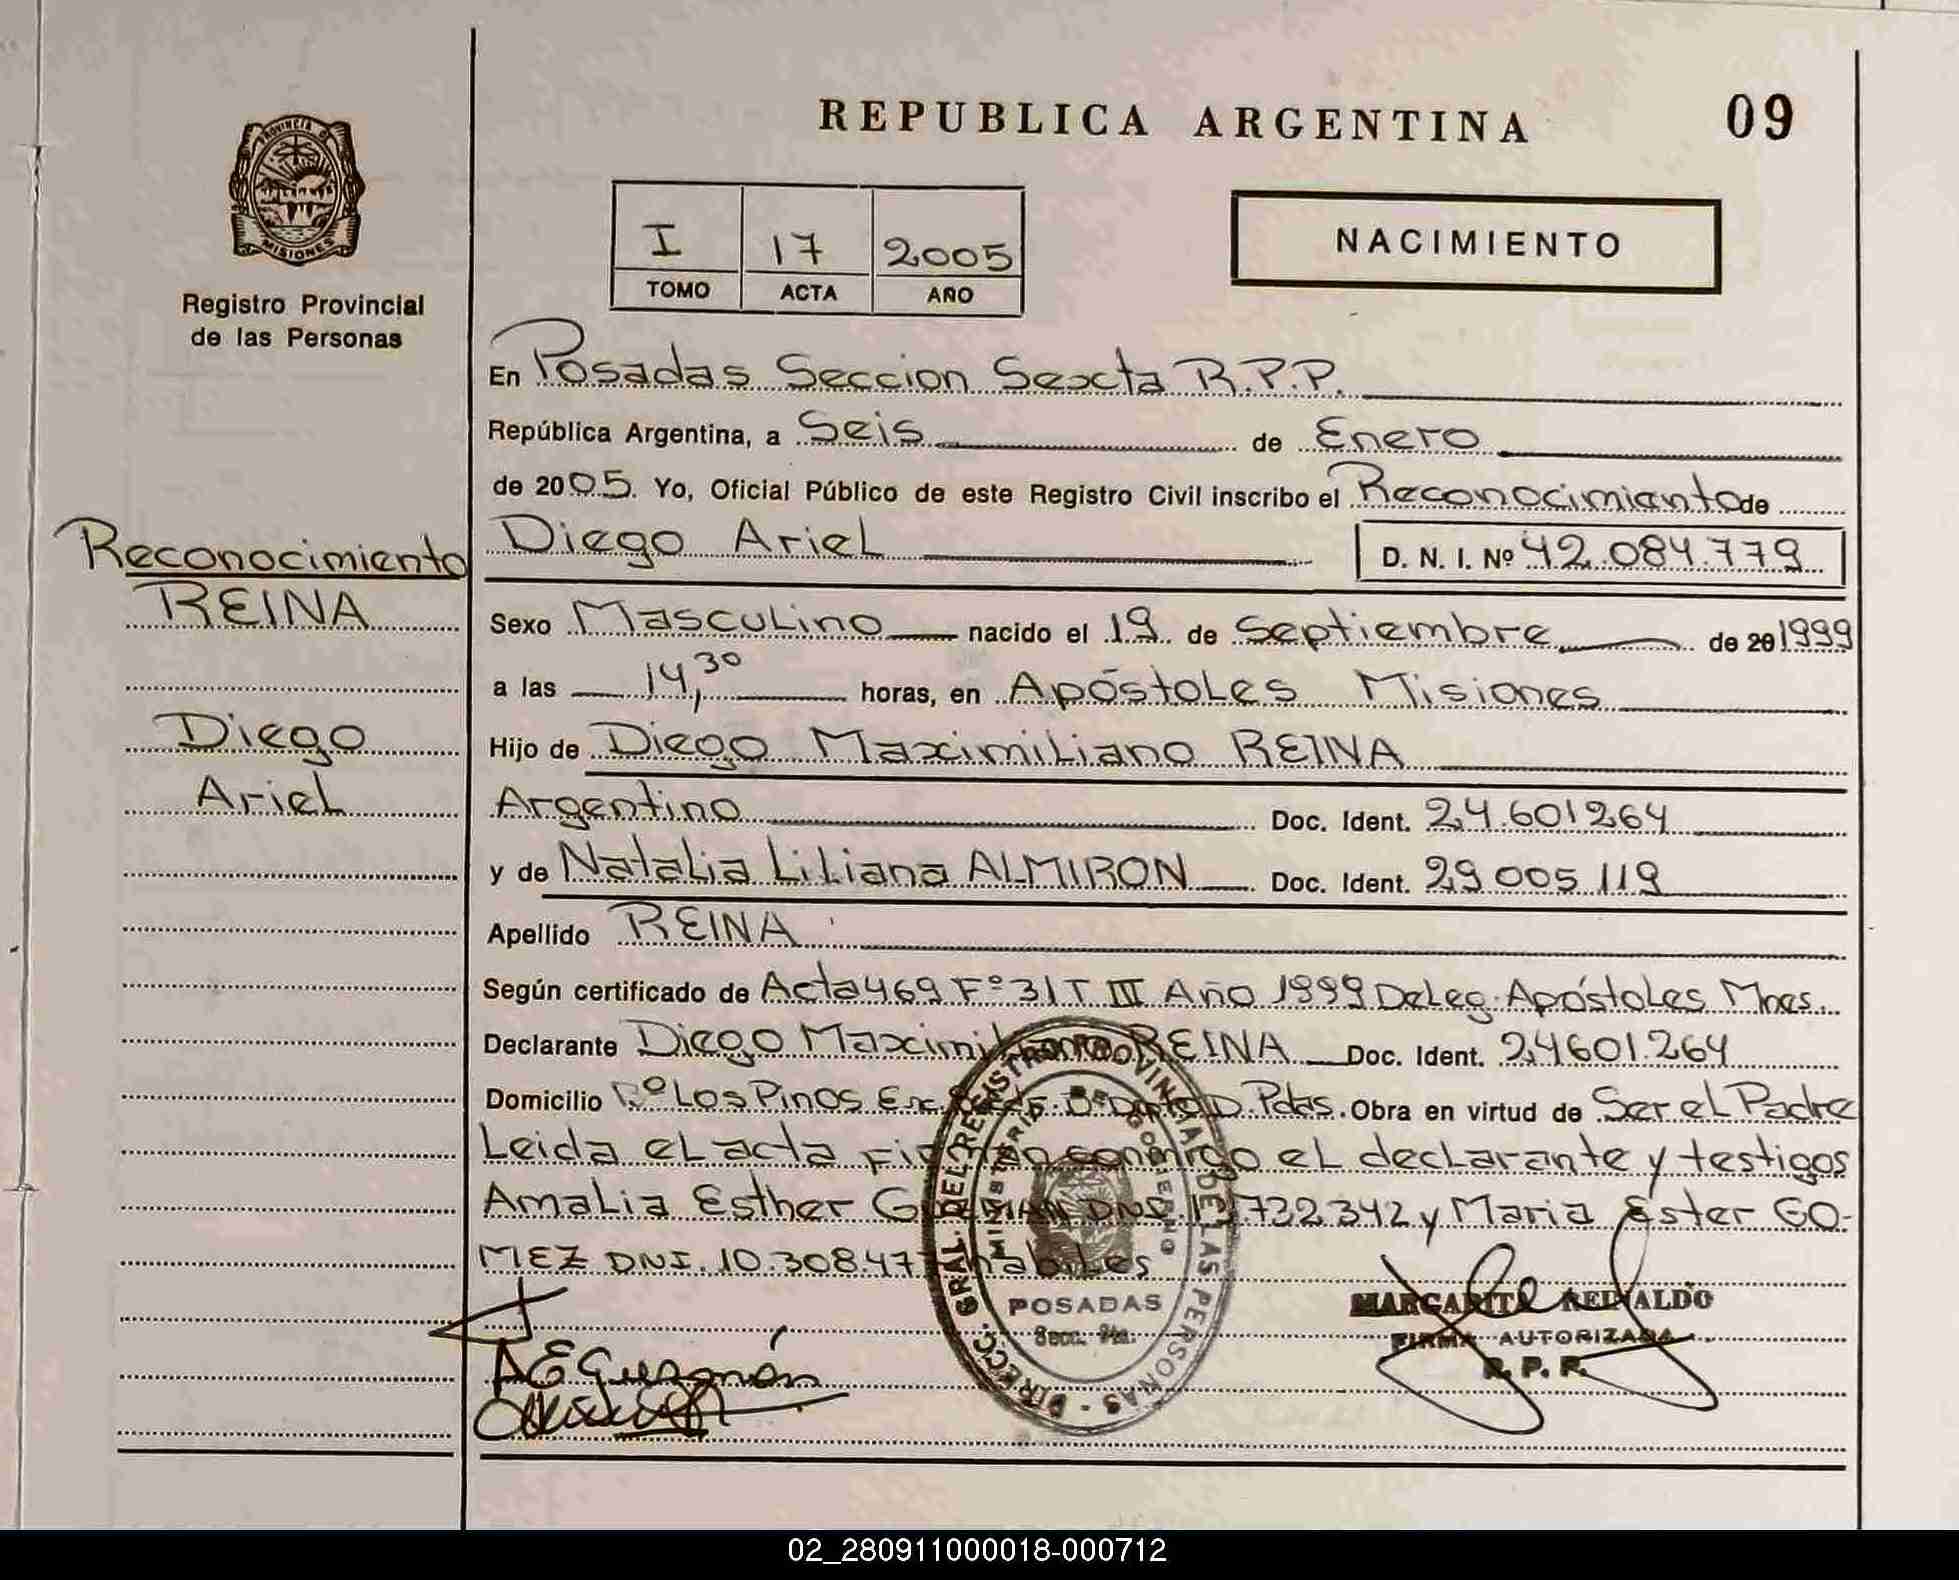 REPUBLICA ARGENTINA 09
PROVINCIA DE
MISIONES
Registro Provincial
de las Personas
I 17 2005
TOMO ACTA AÑO
NACIMIENTO
En Posadas Seccion Sexcta R.P.P.
República Argentina, a Seis de Enero
de 2005. Yo, Oficial Público de este Registro Civil inscribo el Reconocimiento de
Diego Ariel D. N. I. Nº 42.084.779
Reconocimiento
REINA
Diego
Ariel
Sexo Masculino nacido el 19 de Septiembre de 20 1999
a las 14,30 horas, en Apóstoles Misiones
Hijo de Diego Maximiliano REINA
Argentino Doc. Ident. 24.601264
y de Natalia Liliana ALMIRON Doc. Ident. 29 005 119
Apellido REINA
Según certificado de Acta 469 Fº 31 T III Año 1999 Deleg. Apóstoles Mnes.
Declarante Diego Maximiliano REINA Doc. Ident. 24601.264
Domicilio Bº Los Pinos D. Pdas. Obra en virtud de Ser el Padre
Leida el acta Firman conmigo el declarante y testigos
Amalia Esther DNI. 732342 y Maria Ester GO-
MEZ DNI. 10.308.47 habiles
DIRECC. GRAL. DEL REGISTRO PROVINCIAL DE LAS PERSONAS
MINISTERIO DE GOBIERNO
POSADAS
Secc. 6ta.
A E Guzmán
MARGARITA REINALDO
FIRMA AUTORIZADA
R. P. P.
02_280911000018-000712